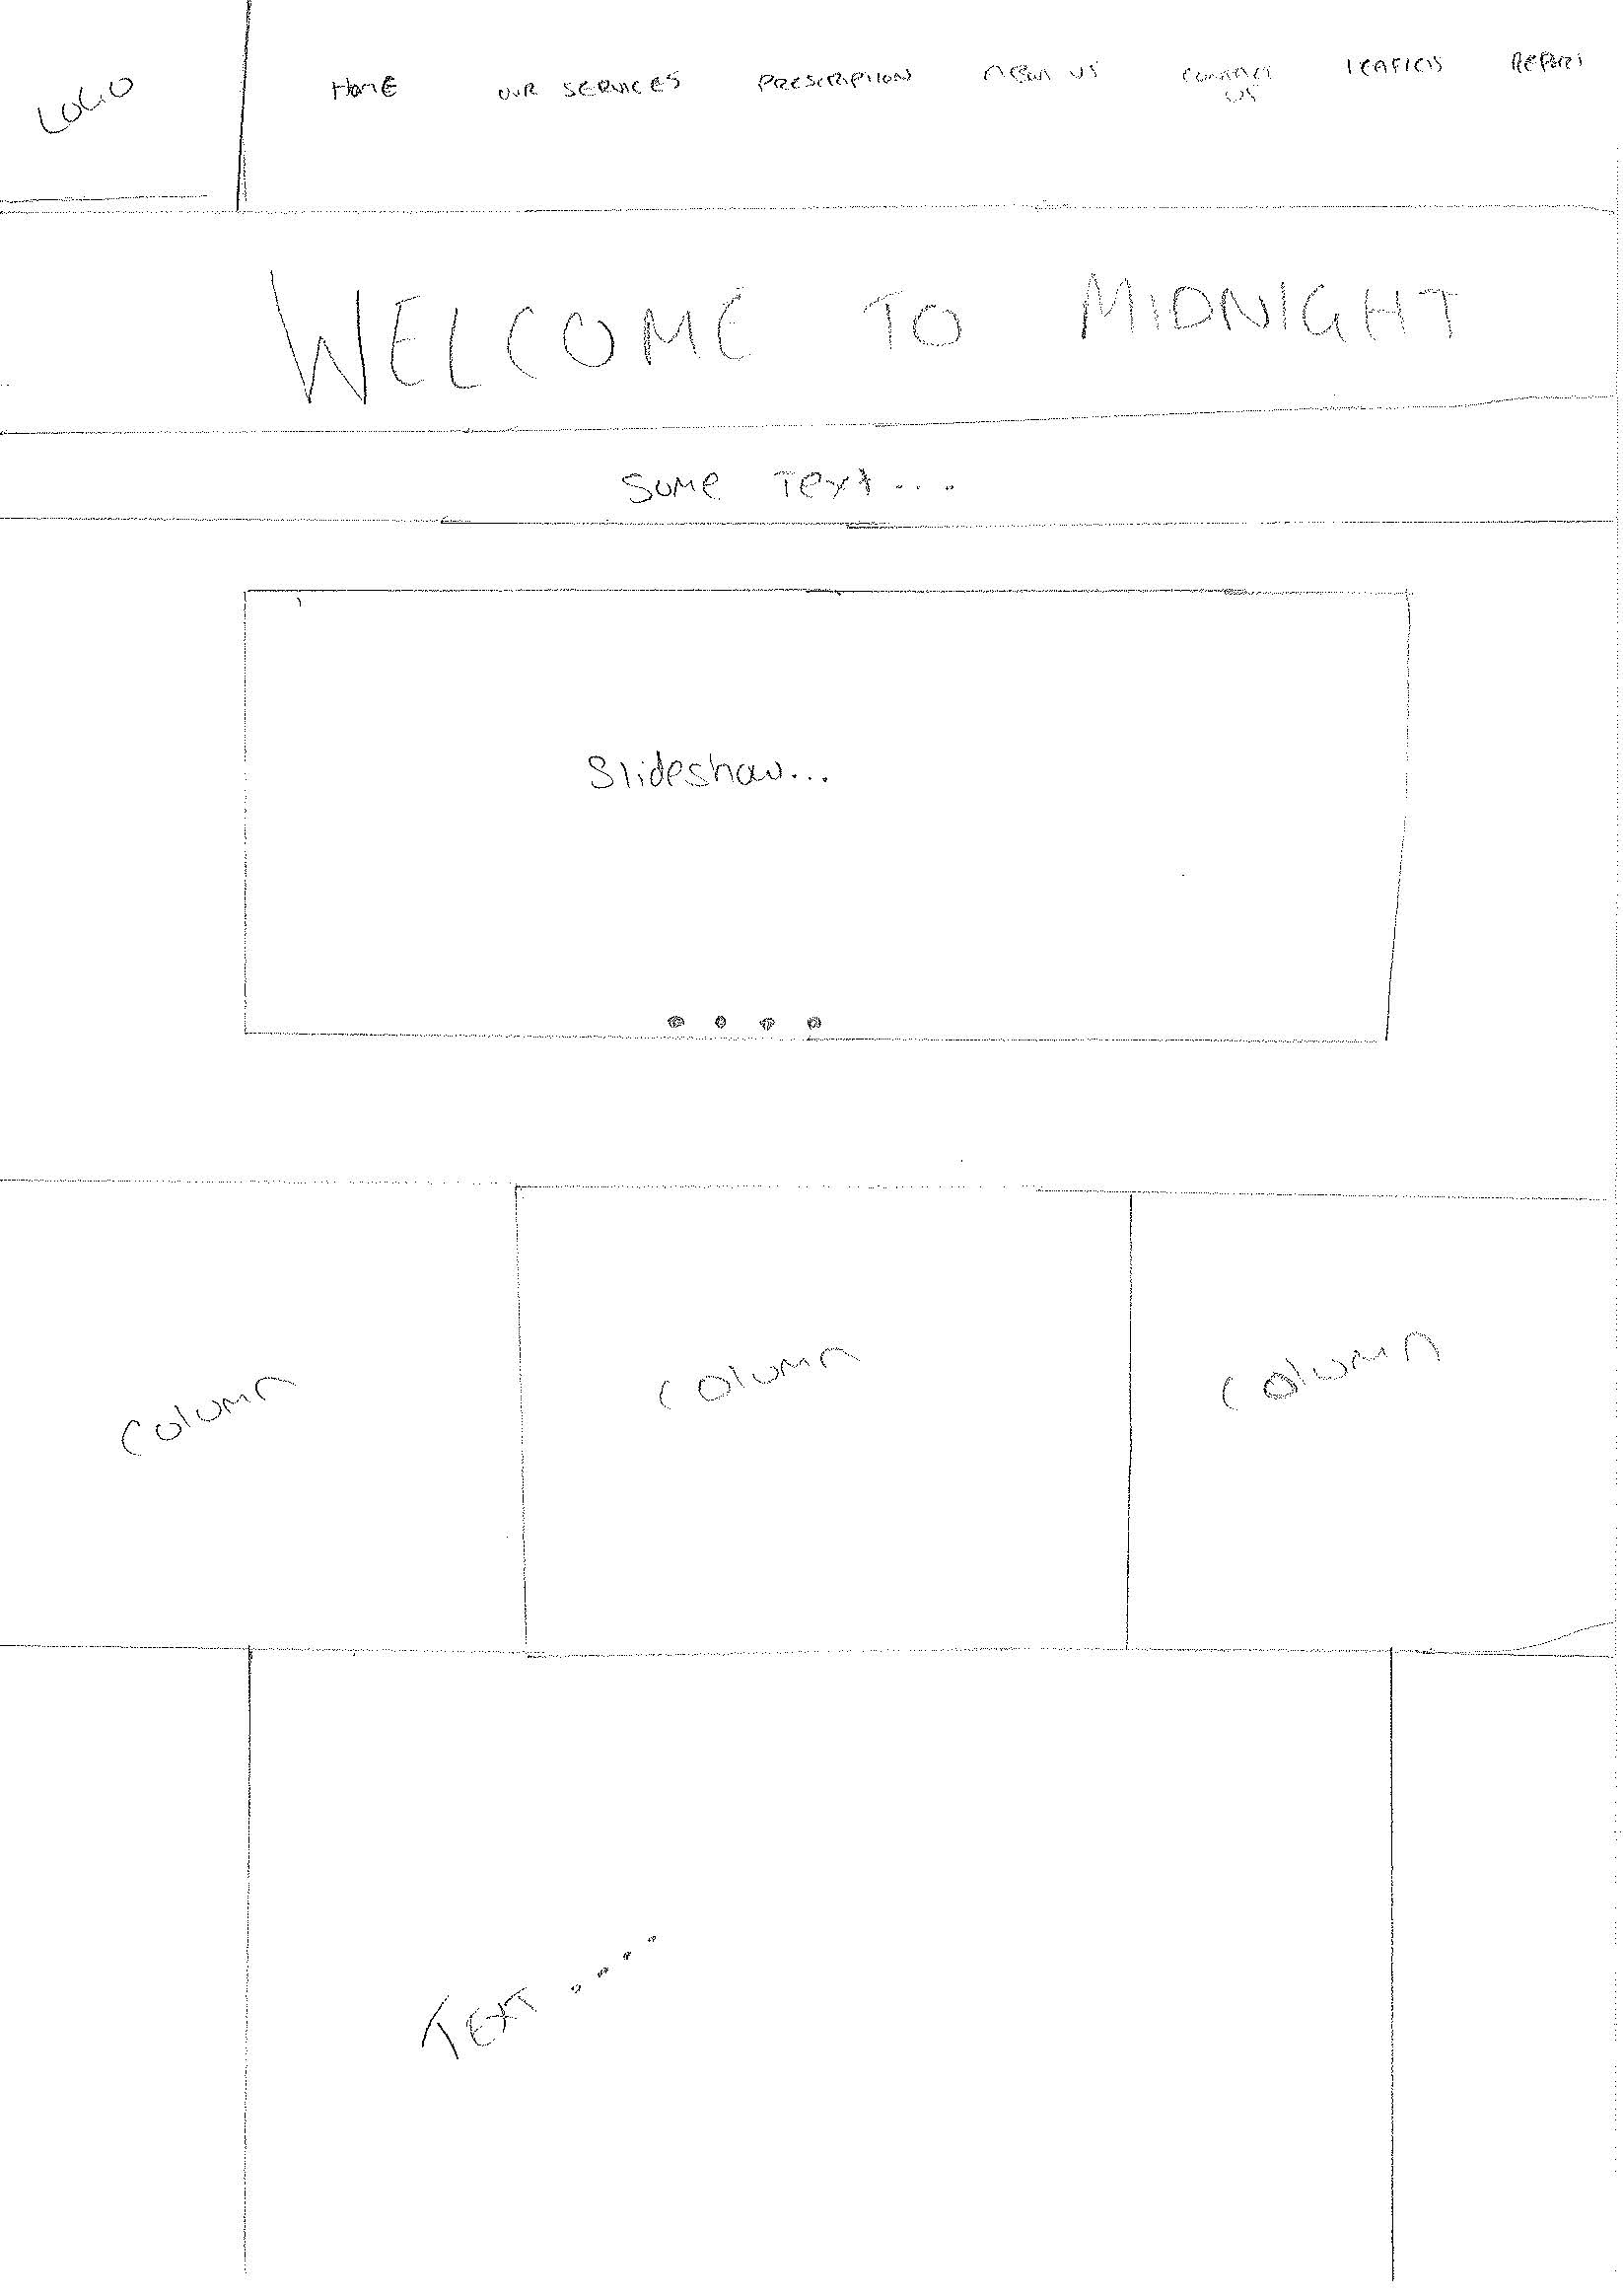 LOGO
HOME OUR SERVICES PRESCRIPTION ABOUT US CONTACT US LEAFLETS REPORT
WELCOME TO MIDNIGHT
SOME Text...
Slideshow...
Column
Column
Column
TEXT ....